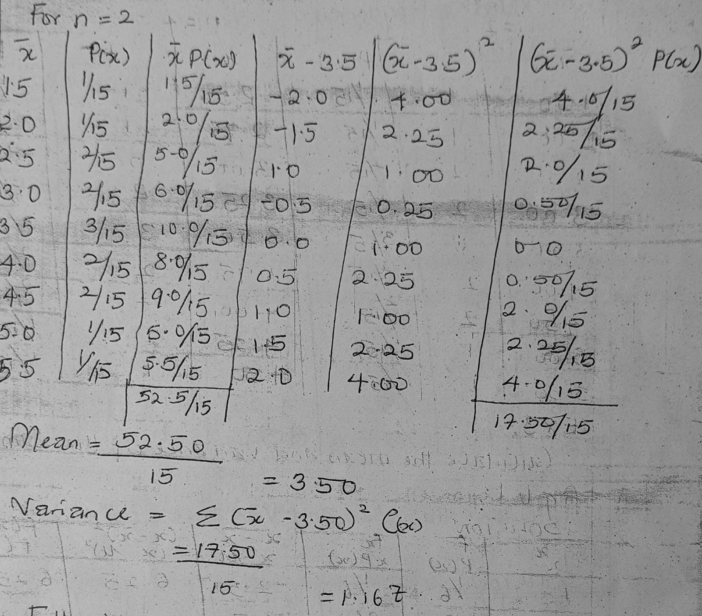 For n = 2
x̄ P(x) x̄ P(x) x̄ - 3.5 (x̄ - 3.5)² (x̄ - 3.5)² P(x)
1.5 1/15 1.5/15 -2.0 4.00 4.0/15
2.0 1/15 2.0/15 -1.5 2.25 2.25/15
2.5 2/15 5.0/15 1.0 1.00 2.0/15
3.0 2/15 6.0/15 -0.5 0.25 0.50/15
3.5 3/15 10.0/15 0.0 1.00 0.0
4.0 2/15 8.0/15 0.5 2.25 0.50/15
4.5 2/15 9.0/15 1.0 1.00 2.0/15
5.0 1/15 5.0/15 1.5 2.25 2.25/15
5.5 1/15 5.5/15 2.0 4.00 4.0/15
52.5/15 17.50/15
Mean = 52.50
15 = 3.50
Variance = Σ (x̄ - 3.50)² P(x)
= 17.50
15 = 1.167